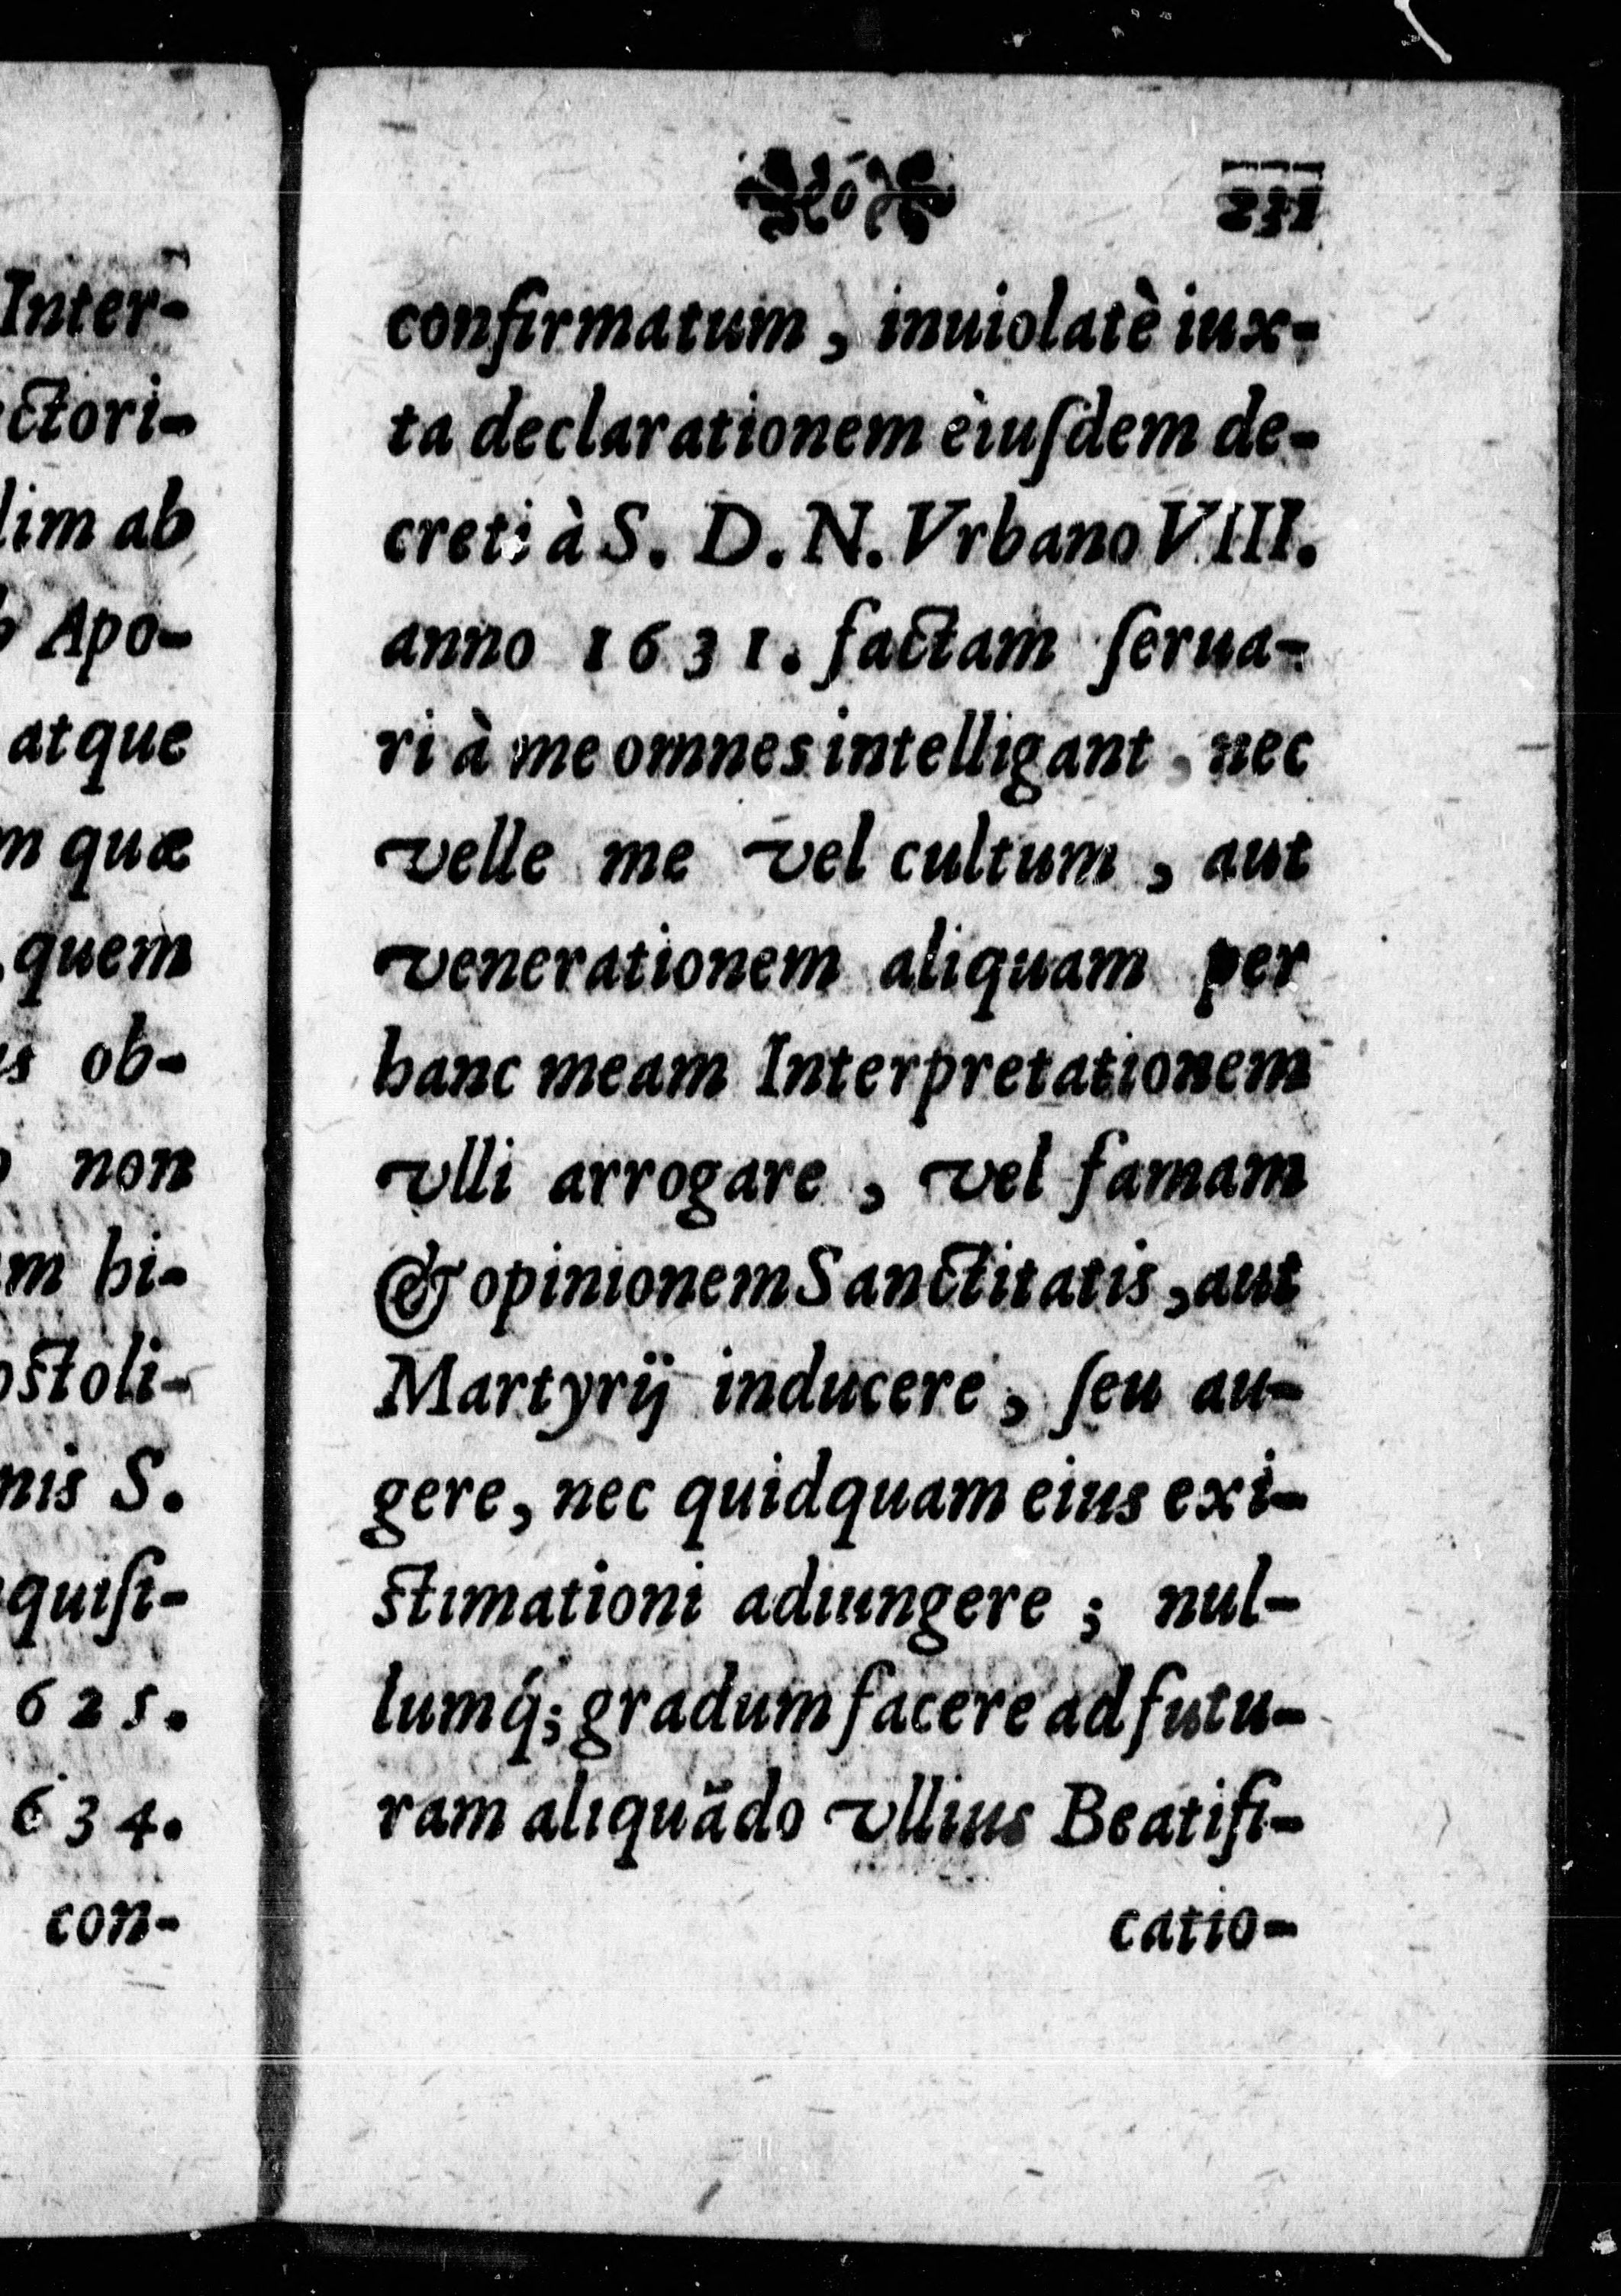 Inter-
ctori-
lim ab
Apo-
atque
quæ
quem
ob-
non
hi-
ostoli-
nis S.
quisi-
625.
634.
con-
231
confirmatum, inuiolatè iux-
ta declarationem èiuſdem de-
creti à S. D. N. Vrbano VIII.
anno 1631. factam ſerua-
ri à me omnes intelligant, nec
velle me vel cultum, aut
venerationem aliquam per
hanc meam Interpretationem
vlli arrogare, vel famam
& opinionem Sanctitatis, aut
Martyrij inducere, ſeu au-
gere, nec quidquam eius exi-
ſtimationi adiungere; nul-
lumq́; gradum facere ad futu-
ram aliquãdo vllius Beatifi-
catio-